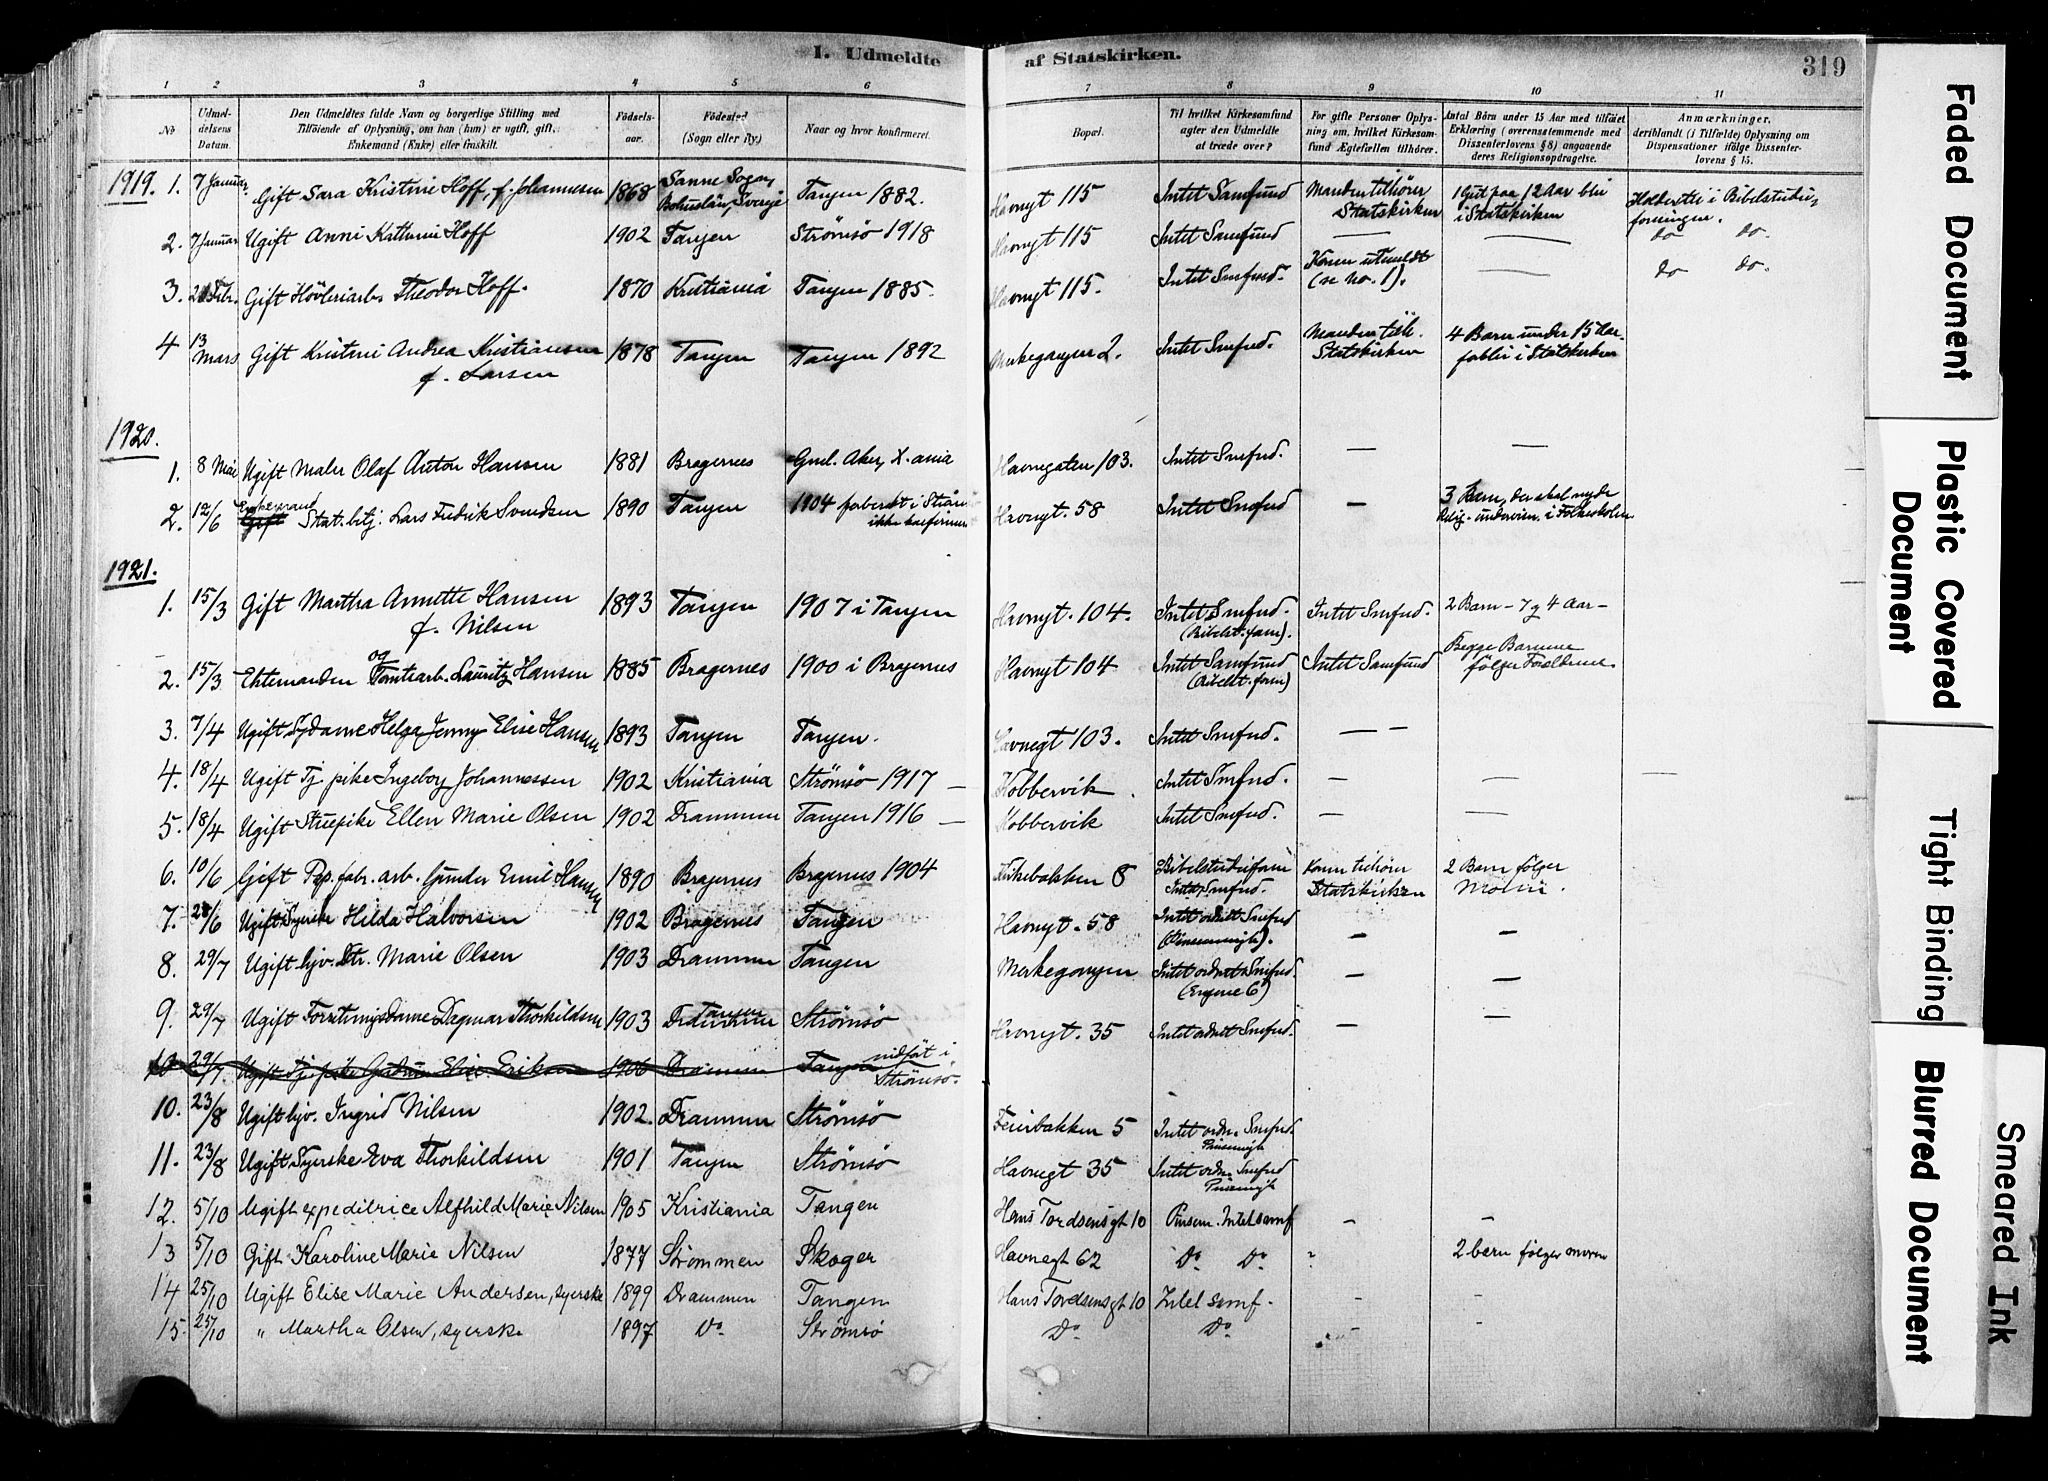 I. Udmeldte af Statskirken.
319
1 2 3 4 5 6 7 8 9 10 11
No
Udmeldelsens Datum.
Den Udmeldtes fulde Navn og borgerlige Stilling med Tilføiende af Oplysning, om han (hun) er ugift, gift, Enkemand (Enke) eller fraskilt.
Fødselsaar.
Fødested (Sogn eller By).
Naar og hvor konfirmeret.
Bopæl.
Til hvilket Kirkesamfund agter den Udmeldte at træde over?
For gifte Personer Oplysning om, hvilket Kirkesamfund Ægtefællen tilhører.
Antal Børn under 15 Aar med tilføiet Erklæring (overensstemmende med Dissenterlovens § 8) angaaende deres Religionsopdragelse.
Anmærkninger, deriblandt (i Tilfælde) Oplysning om Dispensationer ifølge Dissenterlovens § 15.
1919. 1. 7 Januar. Gift Sara Kristine Hoff, f. Johannesen 1868 Sanne Sogn, Bohuslän, Sverige Tangen 1882. Havngt 115 Intet Samfund Manden tilhører Statskirken 1 Gut paa 12 Aar bli i Statskirken Holder til i Bibelstudieforeningen.
2. 7 Januar Ugift Anni Kathrine Hoff 1902 Tangen Strömsö 1918 Havngt 115 Intet Samfund — — do do.
3. 21 Febr. Gift Høvleriarb. Theodor Hoff. 1870 Kristiania Tangen 1885. Havngt 115. Intet Smfund. Konen utmeldt (se no. 1). — do do.
4 13 Mars Gift Kristine Andrea Kristiansen f. Larsen 1878 Tangen Tangen 1892 Merkegangen 2. Intet Smfund. Manden tilh. Statskirken 4 Barn under 15 Aar forblir i Statskirken
1920.
1. 8 Mai Ugift Maler Olaf Anton Hansen 1881 Bragernes Gml. Aker, X.ania Havnegaten 103. Intet Smfund. — —
2. 12/6 Enkemand Gift Stat.btj. Lars Fredrik Svendsen 1890 Tangen 1904 ikke konfirmert Havngt. 58 Intet Smfund — 3 Barn, der skal nyde Relig.-undervisn. i Folkeskolen
1921.
1. 15/3 Gift Martha Annette Hansen f. Nilsen 1893 Tangen 1907 i Tangen Havngt. 104. Intet Smfund. (Bibelst. foren). Intet Smfund. 2 Barn – 7 og 4 Aar –
2. 15/3 Ektemanden og Tomtearb. Lauritz Hansen 1885 Bragernes 1900 i Bragernes Havngt 104 Intet Samfund (Bibelst. foren) Intet Samfund Begge Barnene følger Forældrene.
3. 7/4 Ugift Sydame Helga Jenny Elise Hansen 1893 Tangen Tangen. Havnegt 103. Intet Smfund. — —
4. 18/4 Ugift Tj.pike Ingeborg Johannessen 1902 Kristiania Strömsö 1917 — Kobbervik. Intet Smfund. — — —
5. 18/4 Ugift Stuepike Ellen Marie Olsen 1902 Drammen Tangen 1916 — Kobbervik Intet Smfund. — —
6. 10/6 Gift Pap.fabr.arb. Gunder Emil Hansen 1890 Bragernes Bragernes 1904 8 Intet Smfund. Konen tilhører Statskirken 2 Barn følger Moren.
7. 28/6 Ugift Syerske Hilda Halvorsen 1902 Bragernes Tangen Havngt. 58 Intet ordnet Smfund — —
8. 29/7 Ugift hjv. Dtr. Marie Olsen 1903 Drammen Tangen Merkegangen Intet ordnet Smfund — —
9. 29/7 Ugift Forretningsdame Dagmar Thorkildsen 1903 Tangen Drammen Strömsö Havngt. 35 Intet ordnet Smfund. — —
10 29/7 Ugift Tj.pike Gudrun Elise Eriksen 1906 Drammen Tangen indført i Strömsö.
10. 23/8 Ugift hjv. Ingrid Nilsen 1902. Drammen Strömsö Feierbakken 5 Intet ordn. Smfund.
11. 23/8 Ugift Syerske Eva Thorkildsen 1901 Tangen Strömsö Havnegt 35 Intet ordn. Smfund
12. 5/10 Ugift expeditrice Alfhild Marie Nilsen 1905 Kristiania Tangen Hans Tordsens gt 10 Pinsem. Intet samf — —
13 5/10 Gift Karoline Marie Nilsen 1877 Strømmen Skoger Havnegt 62 Do Do 2 barn følger moren
14 25/10 Ugift Elise Marie Andersen, syerske 1899 Drammen Tangen Hans Tordsens gt 10 Intet samf. — —
15. 25/10 " Martha Olsen, syerske 1897 Do Strömsö Do. Do. — —
Faded Document
Plastic Covered Document
Tight Binding
Blurred Document
Smeared Ink